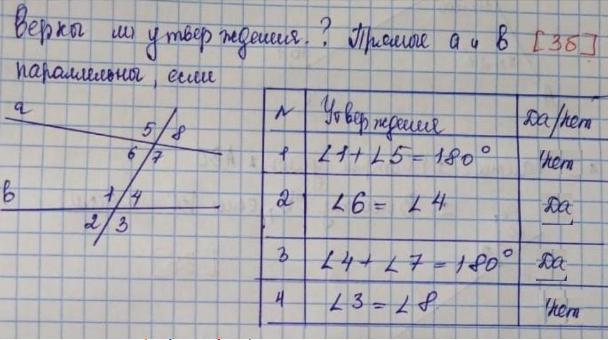 Верны ли утверждения.? Прямые a и в [3б]
параллельны, если
a
5 8
6 7
в
1 4
2 3
N Утверждения Да/нет
1 ∠1+∠5=180° нет
2 ∠6=∠4 Да
3 ∠4+∠7=180° Да
4 ∠3=∠8 нет